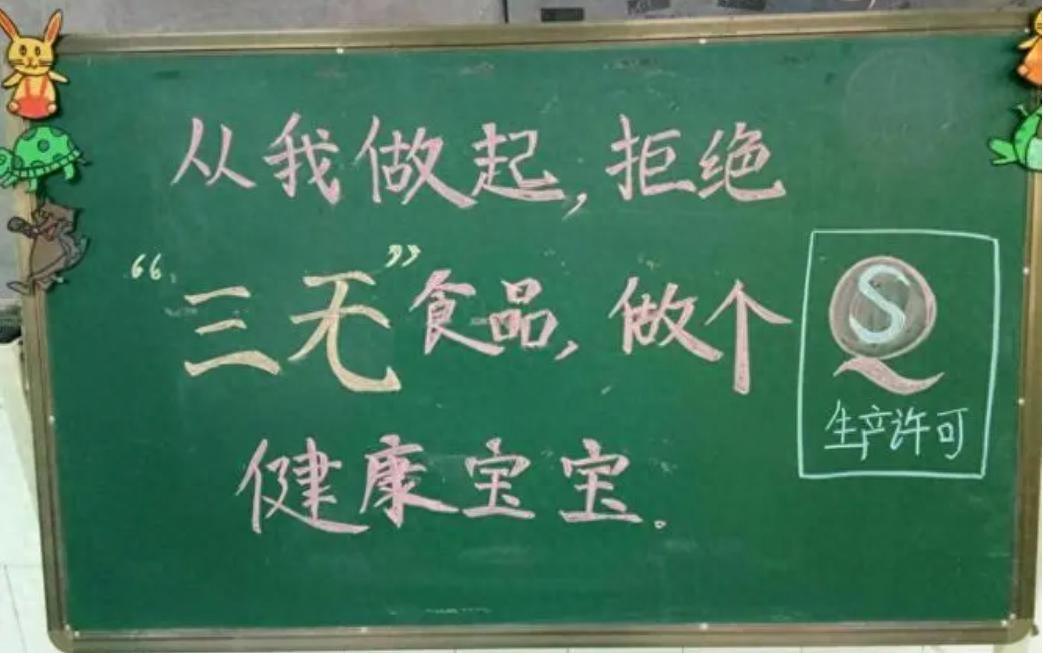 从我做起,拒绝
“三无”食品,做个
健康宝宝。
QS
生产许可